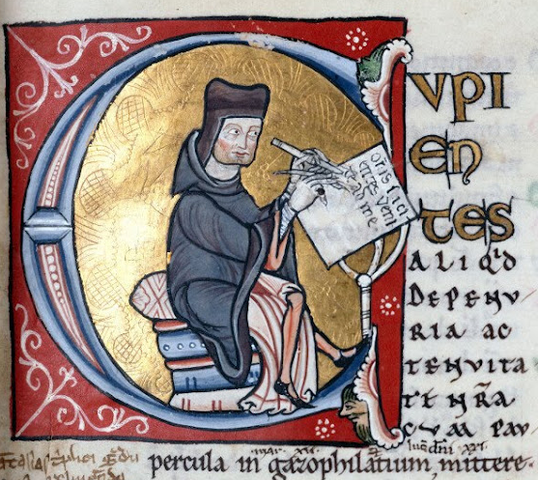 CVPI
EN
TES
ALIQ'D
DEPENV
RIA AC
TENVITA
TE NR̄A
CVM PAV
percula in gazophilatium mittere.
siti
entes veni
te ad me.